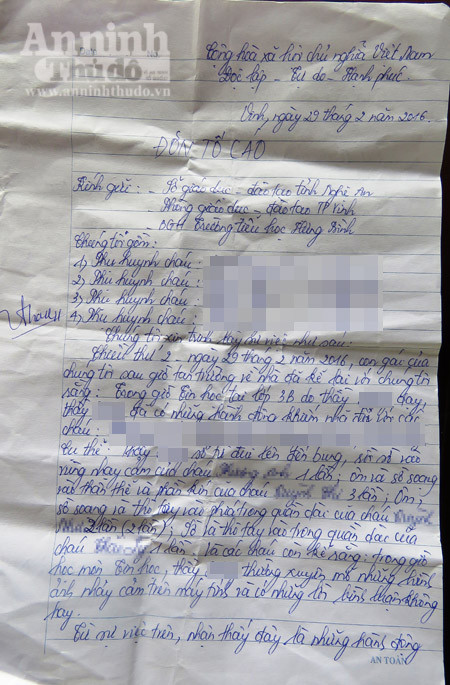 Anninh
Thủđô
www.anninhthudo.vn
Cộng hòa xã hội chủ nghĩa Việt Nam
Độc lập - Tự do - Hạnh phúc.
Vinh, ngày 29 tháng 2 năm 2016.
ĐƠN TỐ CÁO
Kính gửi: - Sở giáo dục - đào tạo tỉnh Nghệ An
Phòng giáo dục - đào tạo TP Vinh
BGH Trường tiểu học Hưng Bình
Chúng tôi gồm:
1) Phụ huynh cháu:
2) Phụ huynh cháu:
3) Phụ huynh cháu:
4) Phụ huynh cháu:
Chúng tôi xin trình bày sự việc như sau:
Chiều thứ 2 - ngày 29 tháng 2 năm 2016, con gái của
chúng tôi sau giờ tan trường về nhà đã kể lại với chúng tôi
rằng: Trong giờ Tin học tại lớp 3B do thầy dạy,
thầy đã có những hành động khiếm nhã đối với các
cháu:
Cụ thể: thầy sờ từ đùi lên đến bụng, sờ số vào
vùng nhạy cảm của cháu 1 lần; Ôm và sờ soạng
vào thân thể và phần kín của cháu 3 lần; Ôm,
sờ soạng và thò tay vào phía trong quần dài của cháu
2 lần (2 lần); Sờ và thò tay vào trong quần dài của
cháu 1 lần. Và các cháu còn kể rằng: trong giờ
học môn Tin học, thầy thường xuyên mở những hình
ảnh nhạy cảm trên máy tính và có những lời bình luận không
hay.
Từ sự việc trên, nhận thấy đây là những hành động
AN TOÀN